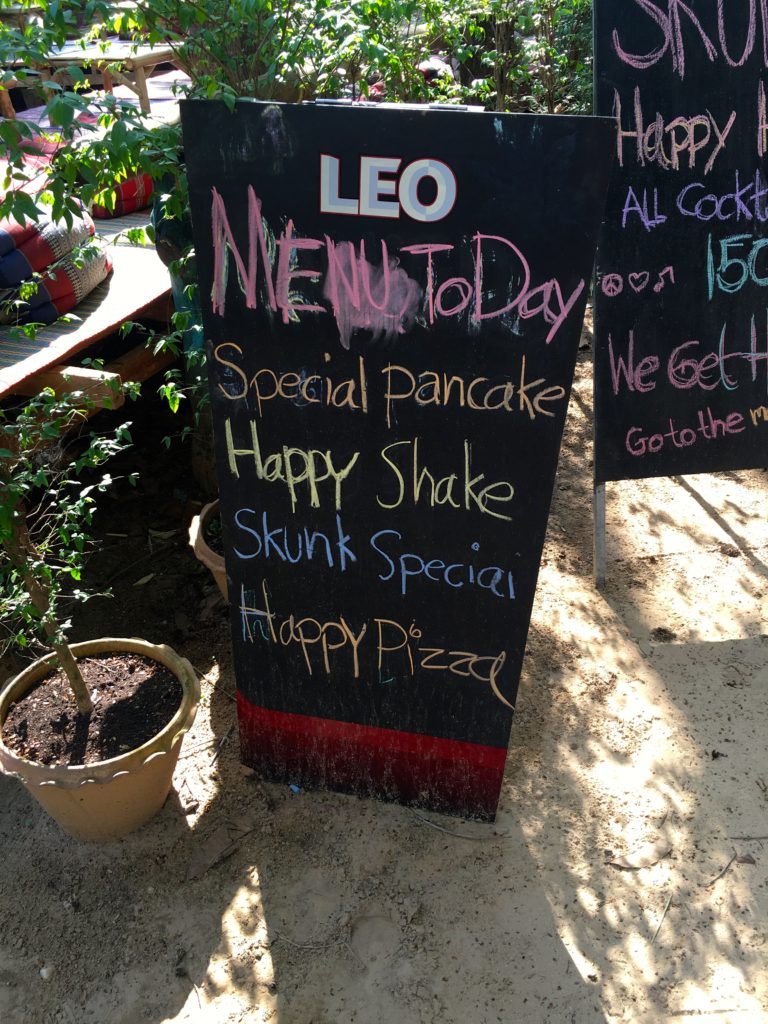 LEO
MENU ToDay
Special pancake
Happy Shake
Skunk Special
Happy Pizza
SKU
Happy H
ALL Cockt
150
We Get H
Go to the m